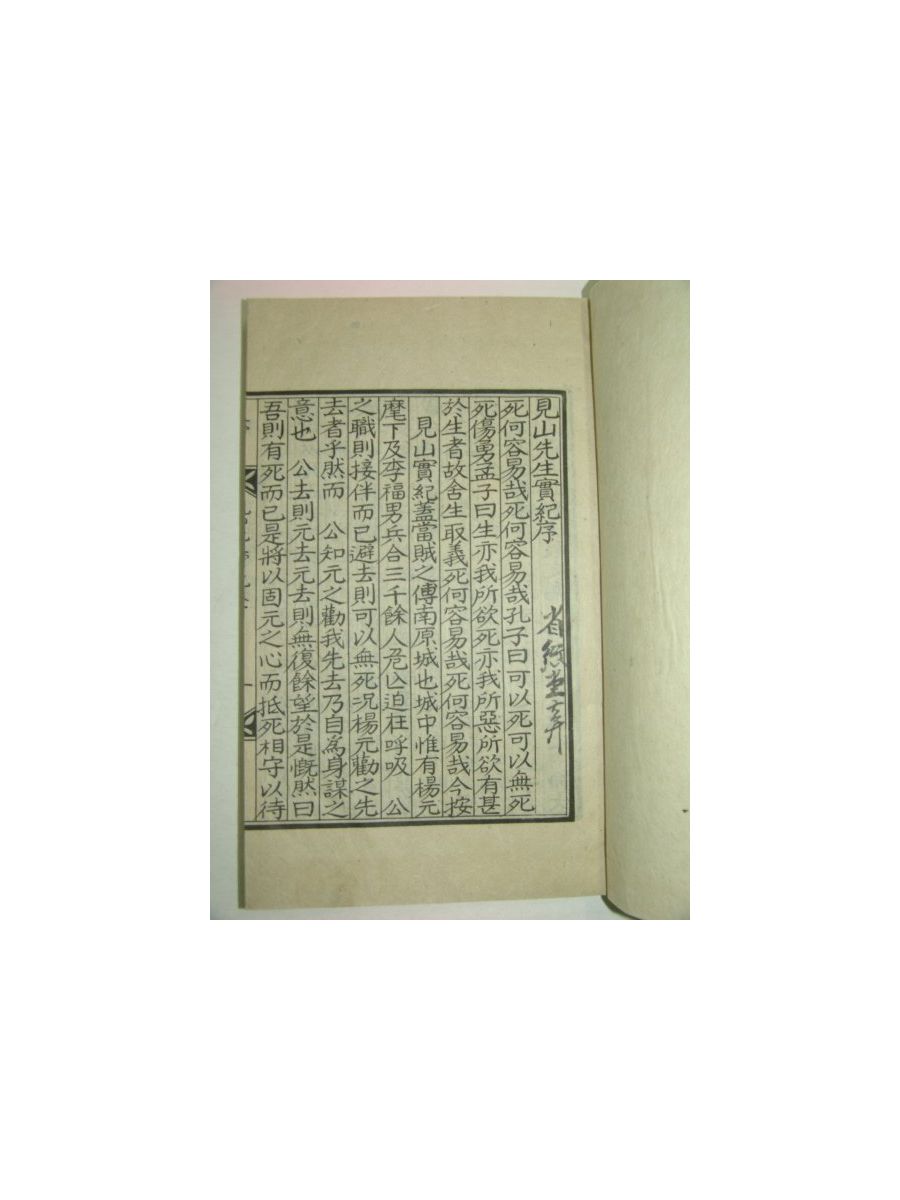 見山先生實紀序
死何容易哉死何容易哉孔子曰可以死可以無死
死傷勇孟子曰生亦我所欲死亦我所惡所欲有甚
於生者故舍生取義死何容易哉死何容易哉今按
見山實紀蓋當賊之傅南原城也城中惟有楊元
麾下及李福男兵合三千餘人危亾迫在呼吸 公
之職則接伴而已避去則可以無死况楊元勸之先
去者乎然而 公知元之勸我先去乃自爲身謀之
意也 公去則元去元去則無復餘望於是慨然曰
吾則有死而已是將以固元之心而抵死相守以待